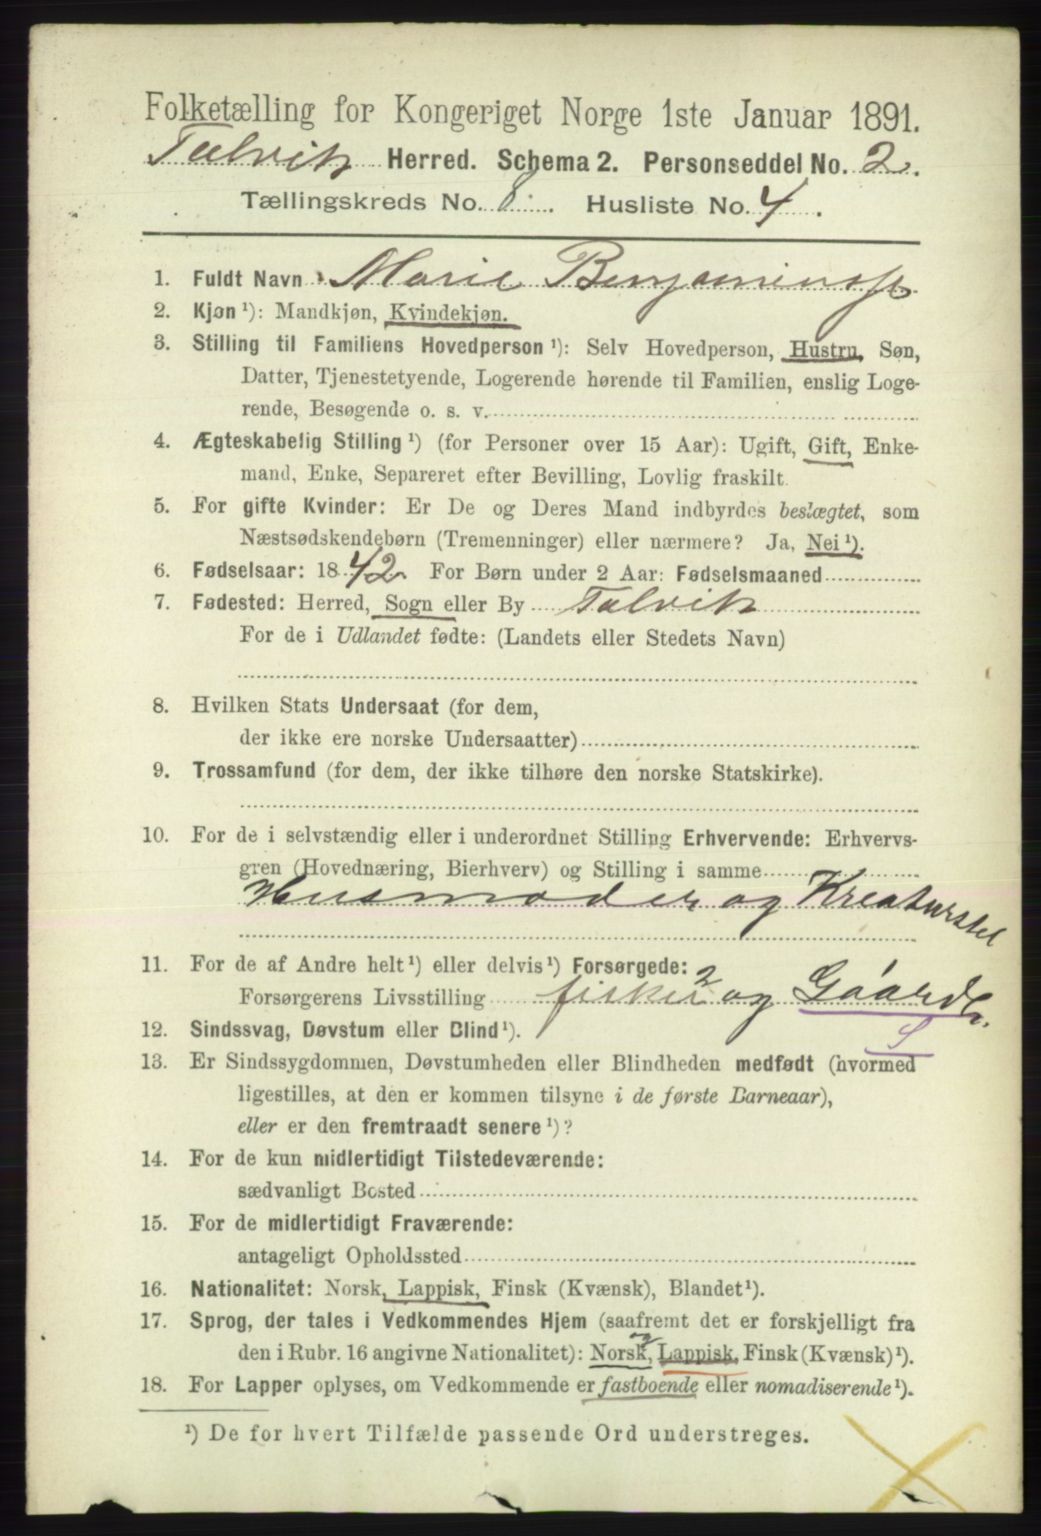 Folketælling for Kongeriget Norge 1ste Januar 1891.
Talvik Herred. Schema 2. Personseddel No. 2.
Tællingskreds No. 8. Husliste No. 4.
1. Fuldt Navn: Marie Benjaminsf
2. Kjøn¹): Mandkjøn, Kvindekjøn.
3. Stilling til Familiens Hovedperson¹): Selv Hovedperson, Hustru, Søn,
Datter, Tjenestetyende, Logerende hørende til Familien, enslig Loge-
rende, Besøgende o. s. v.
4. Ægteskabelig Stilling¹) (for Personer over 15 Aar): Ugift, Gift, Enke-
mand, Enke, Separeret efter Bevilling, Lovlig fraskilt.
5. For gifte Kvinder: Er De og Deres Mand indbyrdes beslægtet, som
Næstsødskendebørn (Tremenninger) eller nærmere? Ja, Nei¹).
6. Fødselsaar: 1842 For Børn under 2 Aar: Fødselsmaaned
7. Fødested: Herred, Sogn eller By Talvik
For de i Udlandet fødte: (Landets eller Stedets Navn)
8. Hvilken Stats Undersaat (for dem,
der ikke ere norske Undersaatter)
9. Trossamfund (for dem, der ikke tilhøre den norske Statskirke).
10. For de i selvstændig eller i underordnet Stilling Erhvervende: Erhvervs-
gren (Hovednæring, Bierhverv) og Stilling i samme
Husmoder og Kreaturstel
11. For de af Andre helt¹) eller delvis¹) Forsørgede: 2
Forsørgerens Livsstilling fisker og Gaardb.
12. Sindssvag, Døvstum eller Blind¹).
13. Er Sindssygdommen, Døvstumheden eller Blindheden medfødt (hvormed
ligestilles, at den er kommen tilsyne i de første Barneaar),
eller er den fremtraadt senere¹)?
14. For de kun midlertidigt Tilstedeværende:
sædvanligt Bosted
15. For de midlertidigt Fraværende:
antageligt Opholdssted
16. Nationalitet: Norsk, Lappisk, Finsk (Kvænsk), Blandet¹).
17. Sprog, der tales i Vedkommendes Hjem (saafremt det er forskjelligt fra
den i Rubr. 16 angivne Nationalitet): Norsk, og Lappisk, Finsk (Kvænsk)¹).
18. For Lapper oplyses, om Vedkommende er fastboende eller nomadiserende¹).
¹) De for hvert Tilfælde passende Ord understreges.